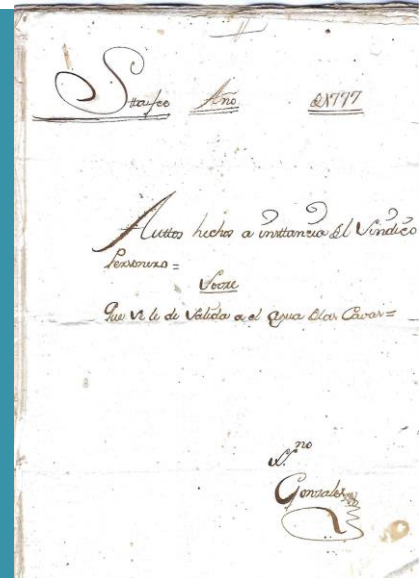 Sttafee Año D1777
Auttos hechos a insttancia del Síndico
Personero =
Sovre
Que se le de Salida a el agua de las Cavas =
SSno
Gonzalez